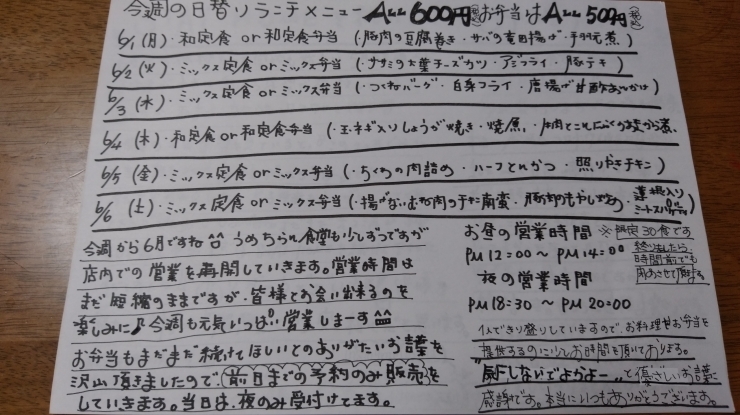 今週の日替りランチメニュー ALL 600円(税込) お弁当は ALL 500円(税込)
6/1 (月)・和定食 or 和定食弁当 (・豚肉の豆腐巻き・サバの竜田揚げ・手羽元煮)
6/2 (火)・ミックス定食 or ミックス弁当 (・ササミの大葉チーズカツ・アジフライ・豚テキ)
6/3 (水)・ミックス定食 or ミックス弁当 (・つくねバーグ・白身フライ・唐揚げ甘酢あんかけ)
6/4 (木)・和定食 or 和定食弁当 (・玉ネギ入りしょうが焼き・焼魚・
6/5 (金)・ミックス定食 or ミックス弁当 (・ちくわの肉詰め・ハーフとんかつ・照りやきチキン)
6/6 (土)・ミックス定食 or ミックス弁当 (・揚げないむね肉のチキン南蛮・豚肉もやし炒め・蓮根入りミートスパゲティ)
今週から6月ですね^^ うめちゃん食堂も少しずつですが
店内での営業を再開していきます。営業時間は
まだ短縮のままですが、皆様とお会い出来るのを
楽しみに♪今週も元気いっぱい営業しまーす^^
お弁当もまだまだ続けてほしいとのありがたいお言葉を
沢山頂きましたので、前日までの予約のみ販売を
していきます。当日は、夜のみ受付けてます。
お昼の営業時間 ※限定30食です
PM 12:00 〜 PM 14:00 終りましたら、
時間前でも
閉めさせて頂きます
夜の営業時間
PM 18:30 〜 PM 20:00
1人できり盛りしていますので、お料理やお弁当を
提供するのに少しお時間を頂いております。
"気にしないでよかよー"と優しいお言葉に
感謝です。本当にいつもありがとうございます。